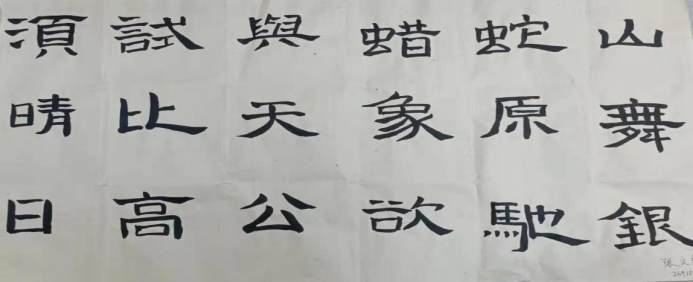 山舞銀
蛇原馳
蜡象欲
與天公
試比高
湏晴日